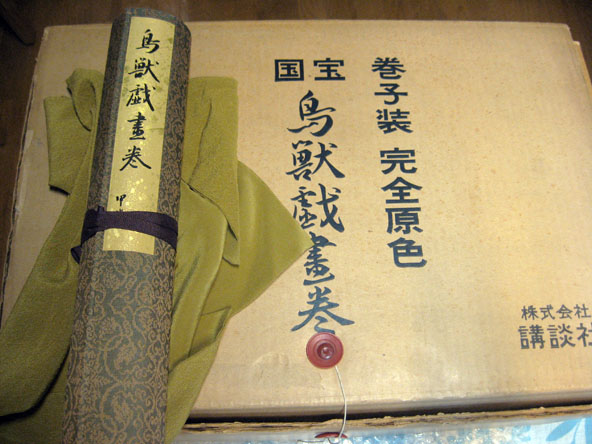 鳥獣戯畫巻
甲
巻子装 完全原色
国宝
鳥獣戯畫巻
株式会社
講談社